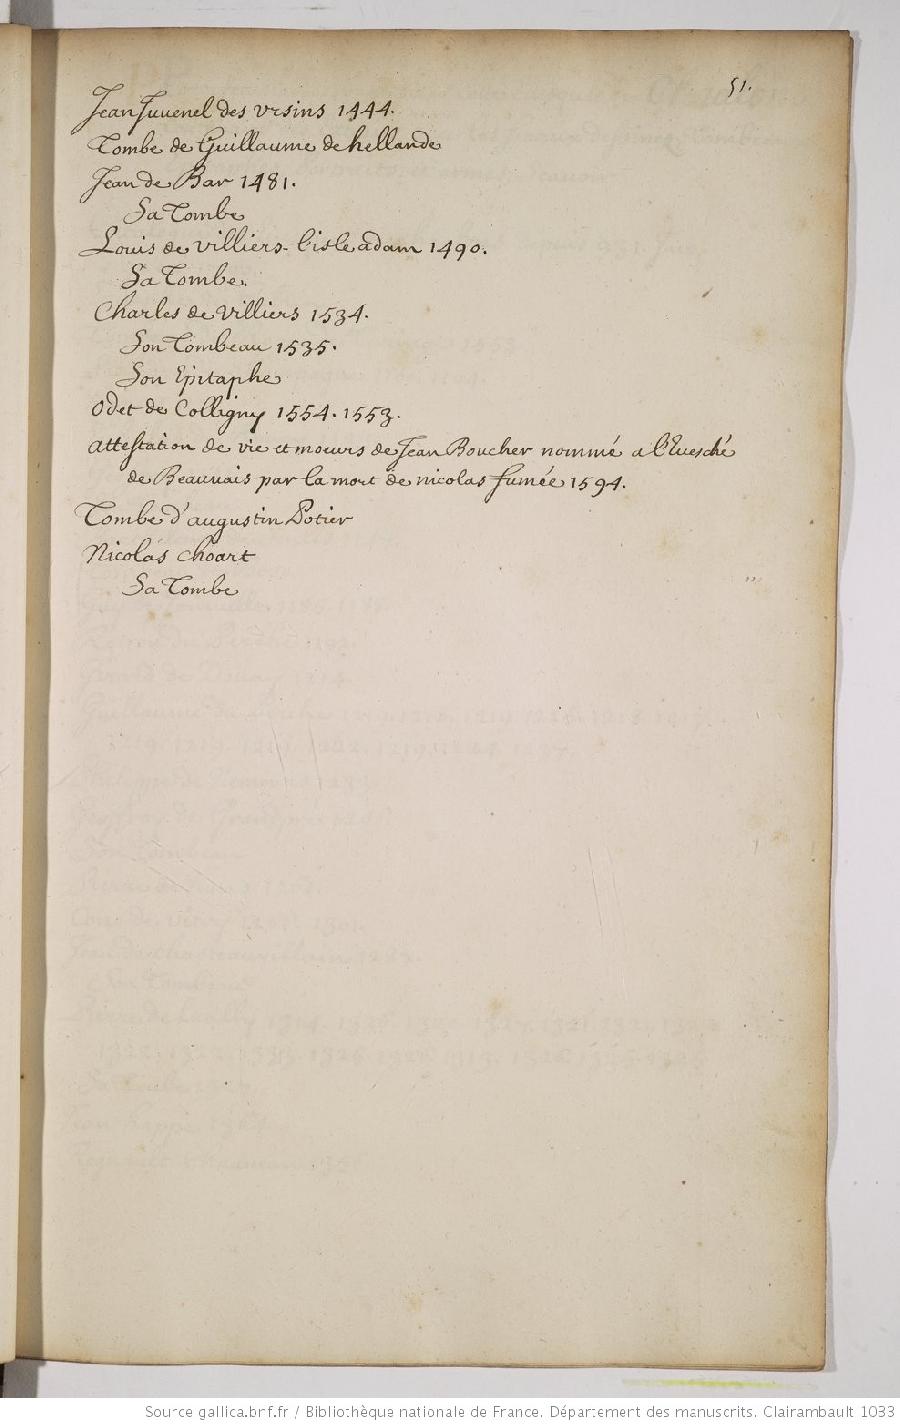 51.
Jean Juvenel des Vrsins 1444.
Tombe de Guillaume de hellande
Jean de Bar 1481.
Sa Tombe
Louis de villiers l'isle adam 1490.
Sa Tombe.
Charles de villiers 1534.
Son Tombeau 1535.
Son Epitaphe
Odet de Colligny 1554. 1553.
attestation de vie et moeurs de Jean Boucher nommé a l'Euesché
de Beauuais par la mort de nicolas fumée 1594.
Tombe d'augustin Potier
Nicolas choart
Sa Tombe
Source gallica.bnf.fr / Bibliothèque nationale de France. Département des manuscrits. Clairambault 1033